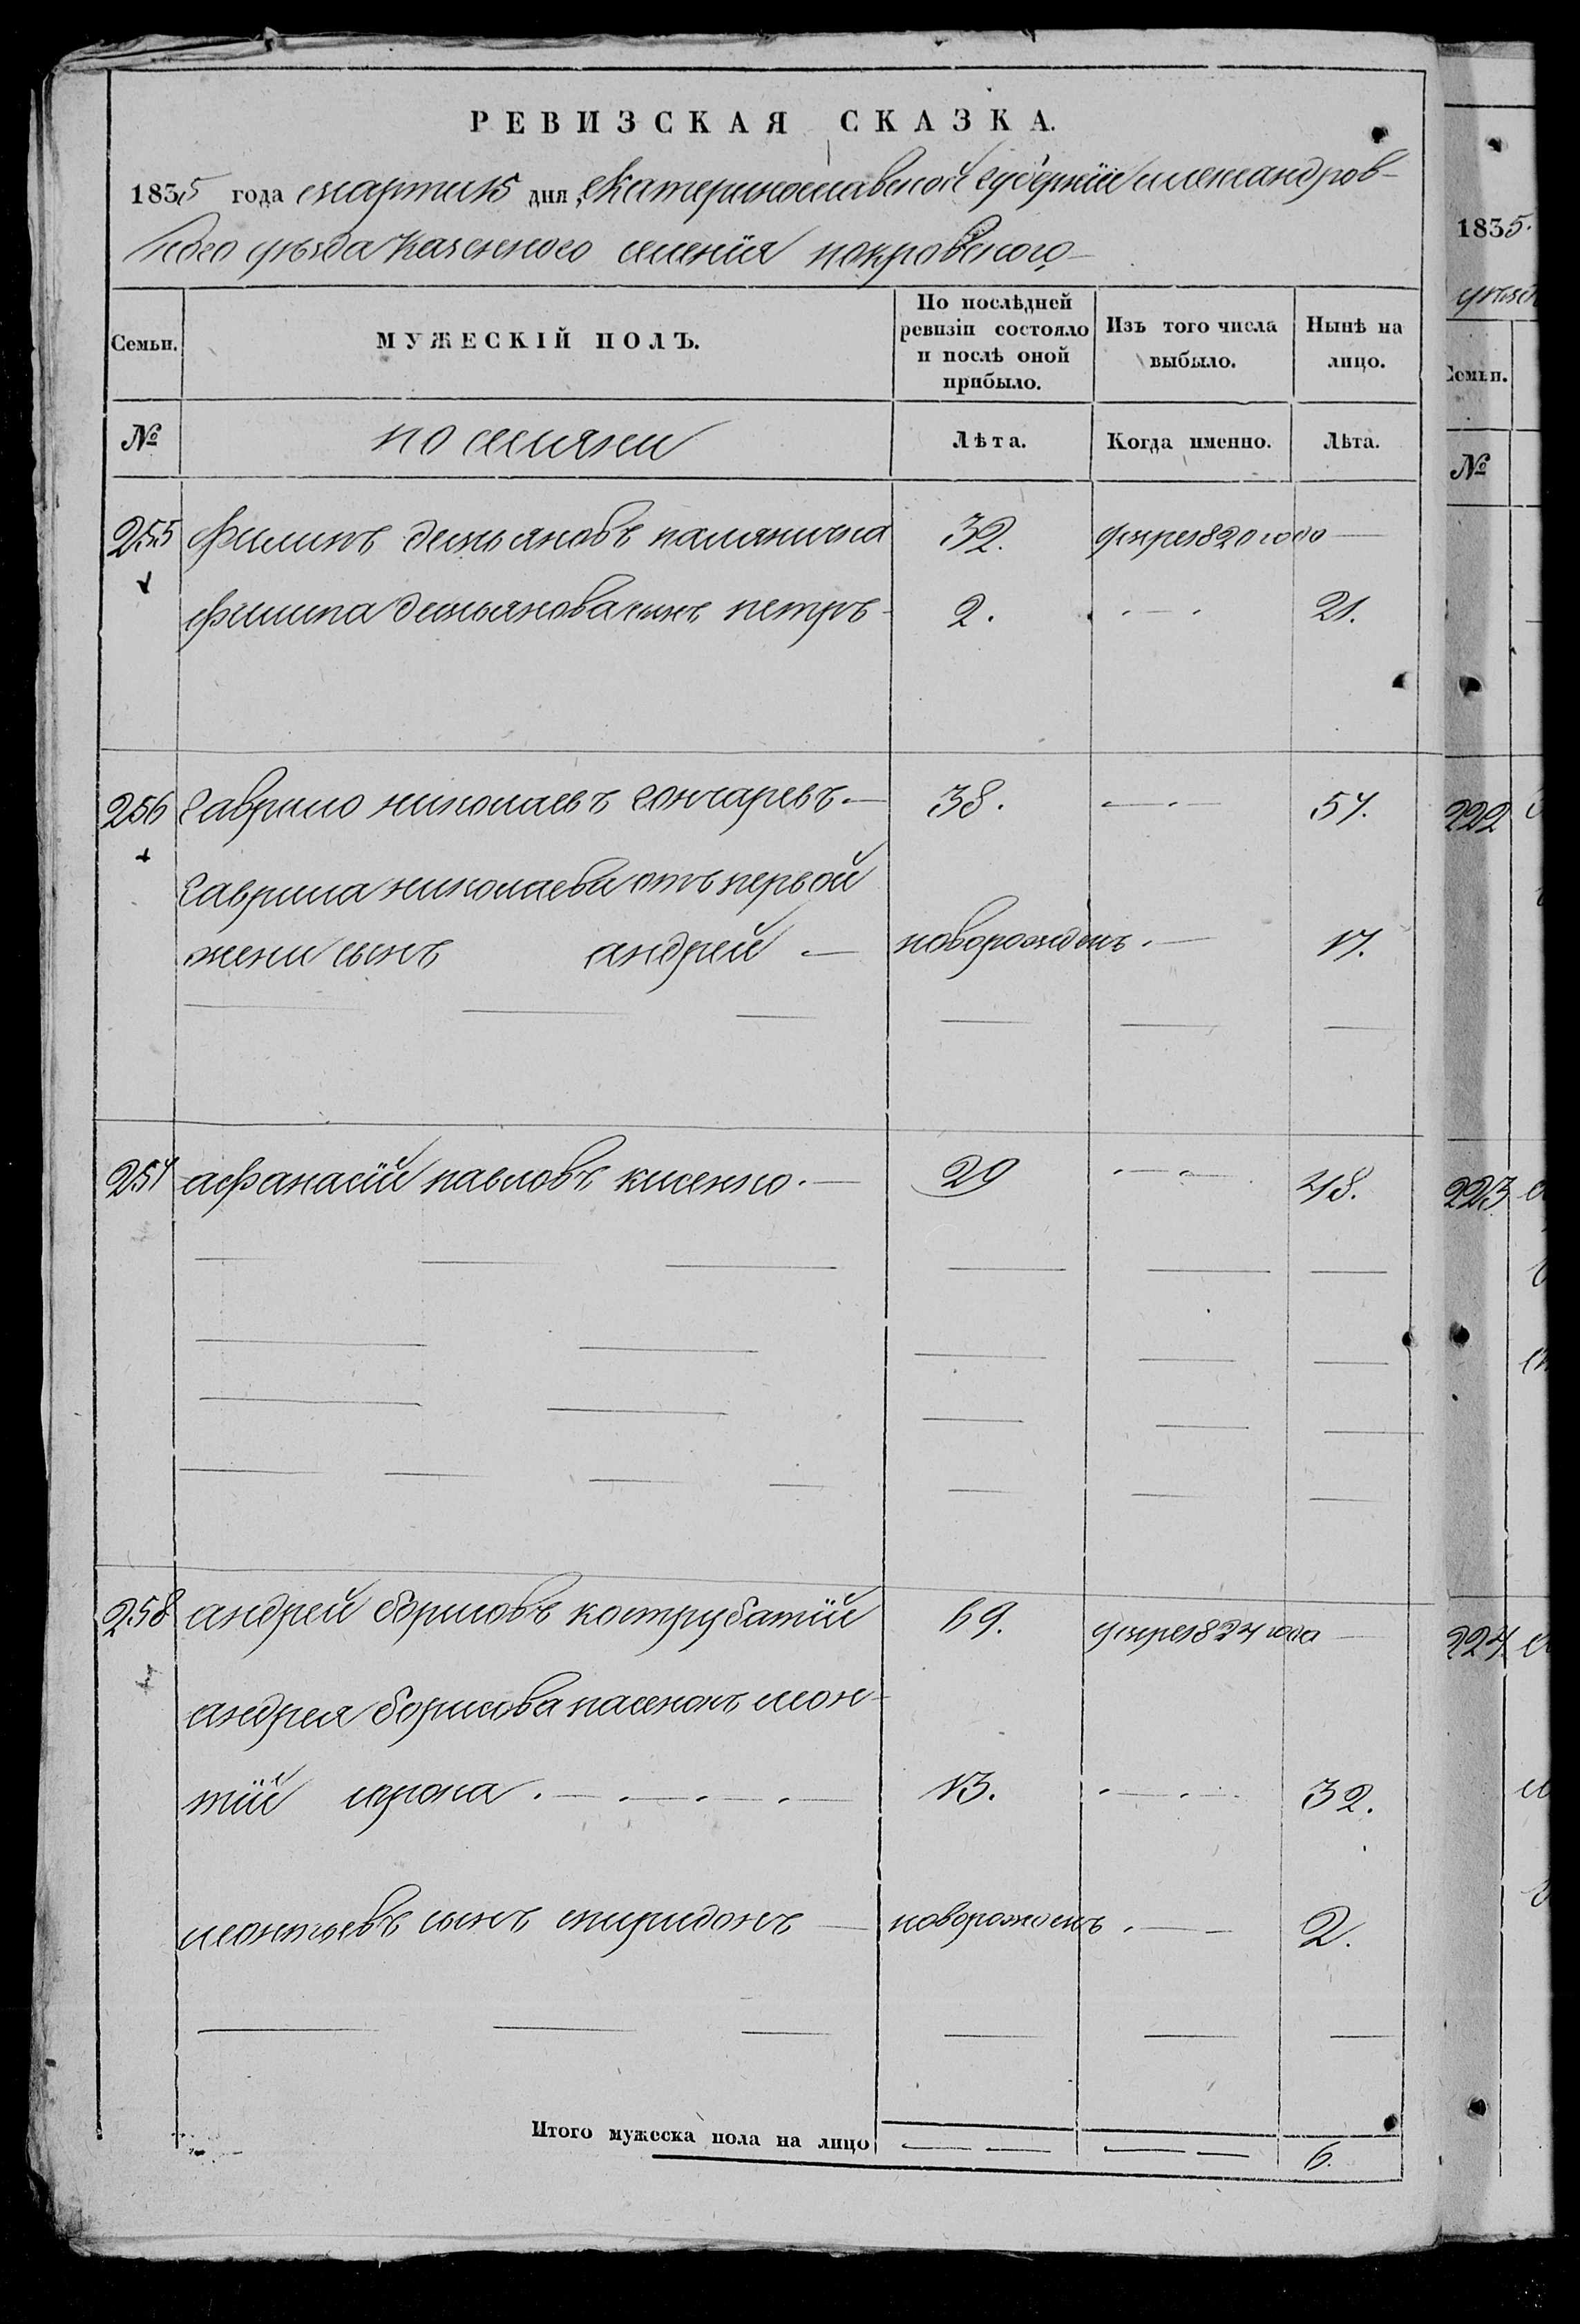 РЕВИЗСКАЯ СКАЗКА.
1835 года марта 15 дня, Екатеринославской губернїи александров-
ского уѣзда казенного селенїя покровского
Семьи. МУЖЕСКІЙ ПОЛЪ. По послѣдней ревизіи состояло и послѣ оной прибыло. Изъ того числа выбыло. Нынѣ на лицо.
№ Лѣта. Когда именно. Лѣта.
255 филипъ демьяновъ паляничка 32. умре 1820 года
филипа демьянова сынъ петръ 2. 21.
256 гаврило николаевъ гончаревъ 38. 57.
гаврила николаева отъ первой
жени сынъ андрей новорожденъ 17.
257 афанасїй павловъ кисенко 29 48.
258 андрей борисовъ кострубатїй 69. умре 1824 года
андрея борисова пасенокъ леон-
тїй 13. 32.
леонтьевъ сынъ спиридонъ новорожденъ 2.
Итого мужеска пола на лицо 6.
1835.
уѣзд
Семьи.
№
222
223
224